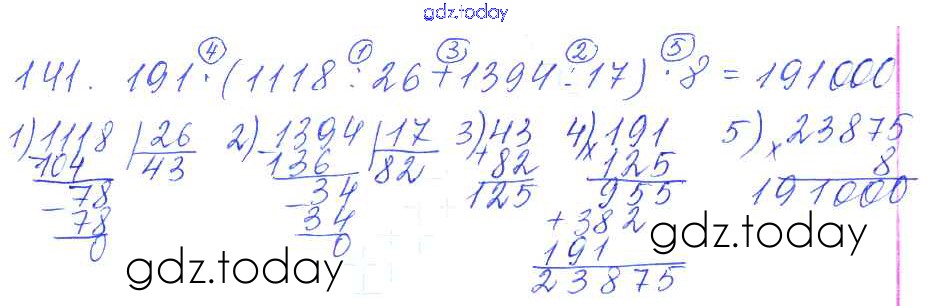 gdz.today
④ ① ③ ② ⑤
141. 191 · (1118 : 26 + 1394 : 17) · 8 = 191000
1) 1118 | 26 2) 1394 | 17 3) 43 4) 191 5) 23875
- 104 | 43 - 136 | 82 + 82 × 125 × 8
- 78 - 34 125 955 191000
78 34 + 382 gdz.today
0 0 191
gdz.today 23875